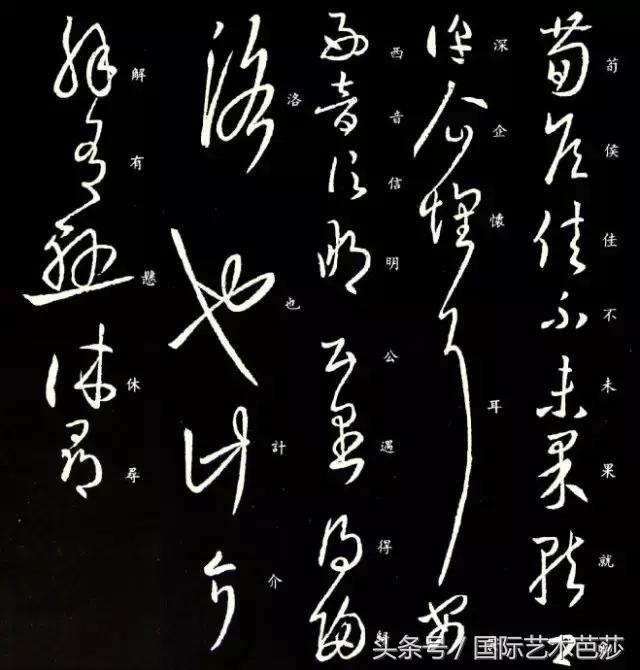 荀侯佳不未果就
深企懷耳
西音信明公遇得歸
洛也計介
解有懸休尋
头条号 / 国际艺术芭莎